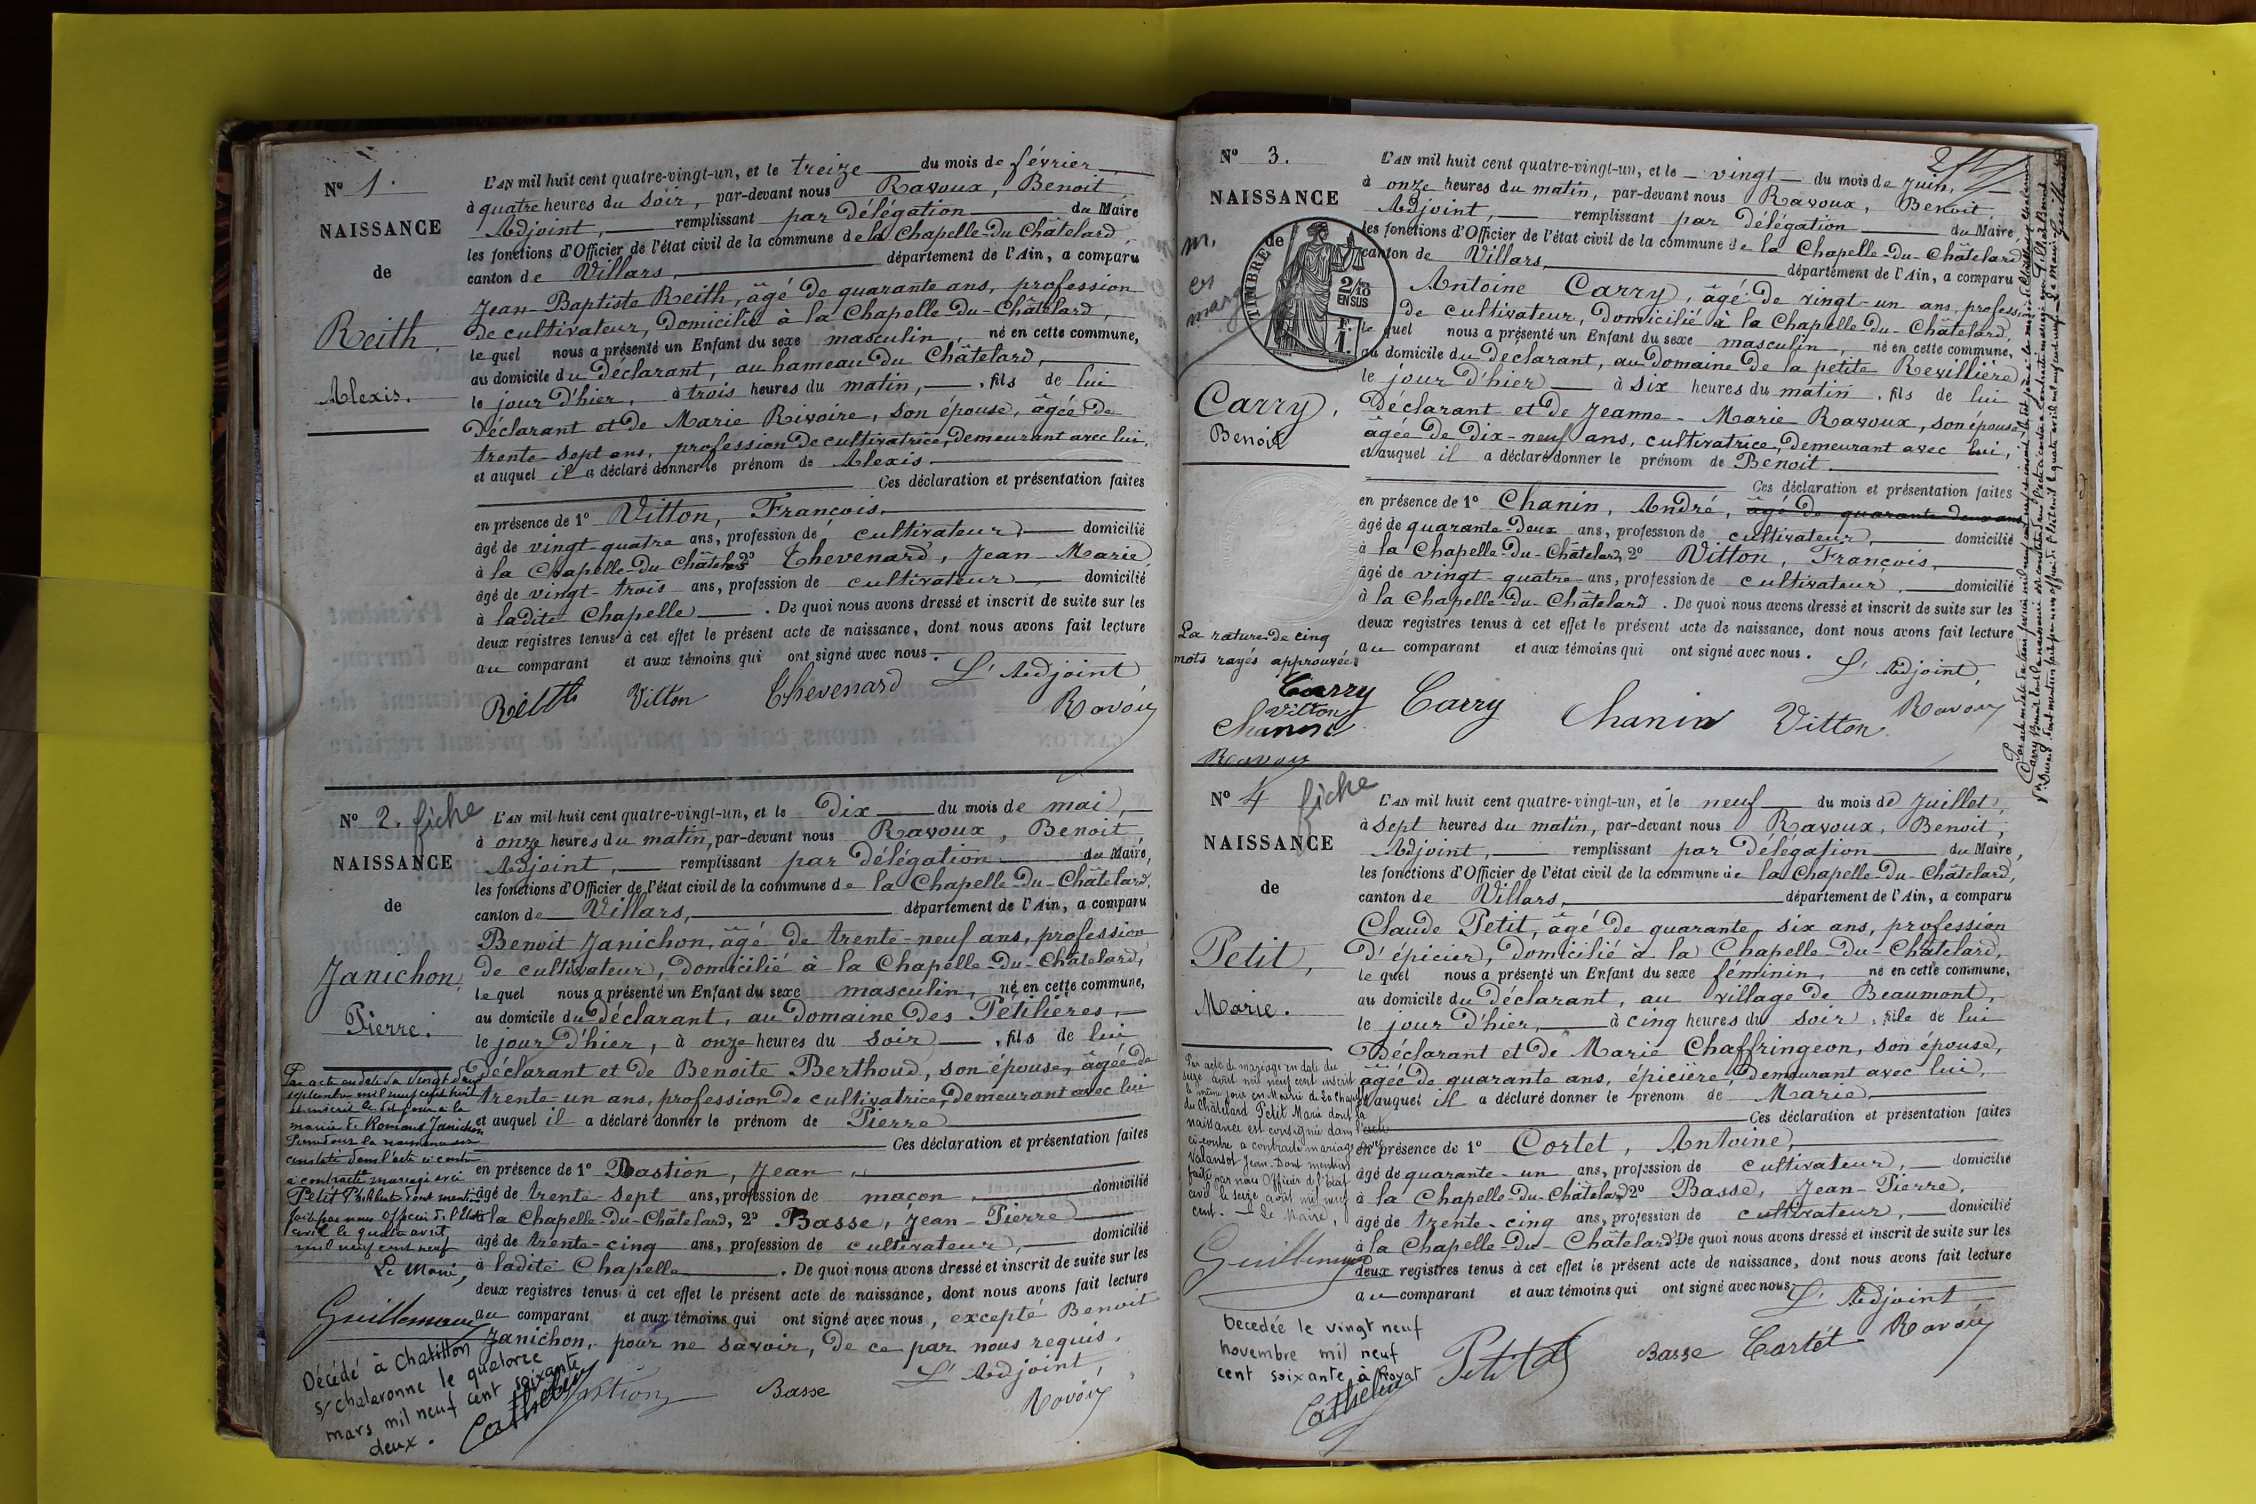 N° 1.
NAISSANCE
de
Reith
Alexis.
L'AN mil huit cent quatre-vingt-un, et le treize du mois de février
à quatre heures du soir, par-devant nous Ravoux, Benoit
Adjoint, remplissant par délégation du Maire
les fonctions d'Officier de l'état civil de la commune de la Chapelle-du-Châtelard
canton de Villars, département de l'Ain, a comparu
Jean-Baptiste Reith, âgé de quarante ans, profession
de cultivateur, domicilié à la Chapelle-du-Châtelard,
lequel nous a présenté un Enfant du sexe masculin, né en cette commune,
au domicile du déclarant, au hameau du Châtelard,
le jour d'hier, à trois heures du matin, fils de lui
déclarant et de Marie Rivoire, son épouse, âgée de
trente-sept ans, profession de cultivatrice, demeurant avec lui,
et auquel il a déclaré donner le prénom de Alexis
Ces déclaration et présentation faites
en présence de 1° Vitton, François,
âgé de vingt-quatre ans, profession de cultivateur domicilié
à la Chapelle-du-Châtelard 2° Thevenard, Jean-Marie
âgé de vingt-trois ans, profession de cultivateur domicilié
à ladite Chapelle. De quoi nous avons dressé et inscrit de suite sur les
deux registres tenus à cet effet le présent acte de naissance, dont nous avons fait lecture
au comparant et aux témoins qui ont signé avec nous. L'Adjoint
Reith Vitton Thevenard Ravoux
N° 2. fiche
NAISSANCE
de
Janichon,
Pierre.
L'AN mil huit cent quatre-vingt-un, et le dix du mois de mai,
à onze heures du matin, par-devant nous Ravoux, Benoit,
Adjoint, remplissant par délégation du Maire,
les fonctions d'Officier de l'état civil de la commune de la Chapelle-du-Châtelard,
canton de Villars, département de l'Ain, a comparu
Benoit Janichon, âgé de trente-neuf ans, profession
de cultivateur, domicilié à la Chapelle-du-Châtelard,
lequel nous a présenté un Enfant du sexe masculin, né en cette commune,
au domicile du déclarant, au domaine des Pétilières,
le jour d'hier, à onze heures du soir, fils de lui
déclarant et de Benoite Berthoud, son épouse, âgée de
trente-un ans, profession de cultivatrice, demeurant avec lui
et auquel il a déclaré donner le prénom de Pierre
Ces déclaration et présentation faites
en présence de 1° Bastion, Jean,
âgé de trente-sept ans, profession de maçon, domicilié
à la Chapelle-du-Châtelard, 2° Basse, Jean-Pierre
âgé de trente-cinq ans, profession de cultivateur, domicilié
à ladite Chapelle. De quoi nous avons dressé et inscrit de suite sur les
deux registres tenus à cet effet le présent acte de naissance, dont nous avons fait lecture
au comparant et aux témoins qui ont signé avec nous, excepté Benoit
Janichon, pour ne savoir, de ce par nous requis.
L'Adjoint,
Bastion Basse Ravoux
Par acte en date du vingt deux
septembre mil neuf cent huit
et inscrit le dit jour à la
mairie de Romans Janichon
Pierre dont la naissance est
constatée dans l'acte ci contre
a contracté mariage avec
Petit Philibert dont mention
faite par nous Officier de l'Etat
civil le quatre avril
mil neuf cent neuf
Le Maire,
Guillemaud
Décédé à Chatillon
s/ Chalaronne le quatorze
mars mil neuf cent soixante
deux.
Cathelin
N° 3.
NAISSANCE
de
TIMBRE
2/10 EN SUS
m.
en
marge
Carry,
Benoit
L'AN mil huit cent quatre-vingt-un, et le vingt du mois de Juin,
à onze heures du matin, par-devant nous Ravoux, Benoit
Adjoint, remplissant par délégation du Maire
les fonctions d'Officier de l'état civil de la commune de la Chapelle-du-Châtelard
canton de Villars, département de l'Ain, a comparu
Antoine Carry, âgé de vingt-un ans, profession
de cultivateur, domicilié à la Chapelle-du-Châtelard,
lequel nous a présenté un Enfant du sexe masculin, né en cette commune,
au domicile du déclarant, au domaine de la petite Revillière
le jour d'hier à six heures du matin, fils de lui
déclarant et de Jeanne-Marie Ravoux, son épouse,
âgée de dix-neuf ans, cultivatrice, demeurant avec lui,
et auquel il a déclaré donner le prénom de Benoit
Ces déclaration et présentation faites
en présence de 1° Chanin, André, âgé de quarante deux ans
âgé de quarante-deux ans, profession de cultivateur, domicilié
à la Chapelle-du-Châtelard, 2° Vitton, François,
âgé de vingt-quatre ans, profession de cultivateur, domicilié
à la Chapelle-du-Châtelard. De quoi nous avons dressé et inscrit de suite sur les
deux registres tenus à cet effet le présent acte de naissance, dont nous avons fait lecture
au comparant et aux témoins qui ont signé avec nous. L'Adjoint,
Carry Chanin Vitton Ravoux
La rature de cinq
mots rayés approuvée.
Carry
Vitton
Chanin
Ravoux
N° 4 fiche
NAISSANCE
de
Petit,
Marie.
L'AN mil huit cent quatre-vingt-un, et le neuf du mois de Juillet,
à sept heures du matin, par-devant nous Ravoux, Benoit,
Adjoint, remplissant par délégation du Maire,
les fonctions d'Officier de l'état civil de la commune de la Chapelle-du-Châtelard,
canton de Villars, département de l'Ain, a comparu
Claude Petit, âgé de quarante-six ans, profession
d'épicier, domicilié à la Chapelle-du-Châtelard,
lequel nous a présenté un Enfant du sexe féminin, né en cette commune,
au domicile du déclarant, au village de Beaumont,
le jour d'hier, à cinq heures du soir, file de lui
Déclarant et de Marie Chaffringeon, son épouse,
âgée de quarante ans, épicière, demeurant avec lui,
et auquel il a déclaré donner le prénom de Marie
Ces déclaration et présentation faites
en présence de 1° Cortet, Antoine,
âgé de quarante-un ans, profession de cultivateur, domicilié
à la Chapelle-du-Châtelard 2° Basse, Jean-Pierre,
âgé de trente-cinq ans, profession de cultivateur, domicilié
à la Chapelle-du-Châtelard. De quoi nous avons dressé et inscrit de suite sur les
deux registres tenus à cet effet le présent acte de naissance, dont nous avons fait lecture
au comparant et aux témoins qui ont signé avec nous. L'Adjoint
Petit Basse Cortet Ravoux
Par acte de mariage en date du
seize août mil neuf cent inscrit
le même jour en Mairie de La Chapelle
du Châtelard Petit Marie dont la
naissance est consignée dans l'acte
ci-contre a contracté mariage avec
Valansot Jean. Dont mention
faite par nous Officier de l'état
civil le seize août mil neuf
cent. Le Maire,
Guillemaud
Decedée le vingt neuf
novembre mil neuf
cent soixante à Royat
Cathelin